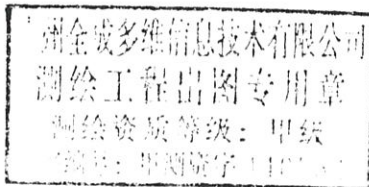 州金成多维信息技术有限公司
测绘工程出图专用章
测绘资质等级：甲级
编号：甲测资字